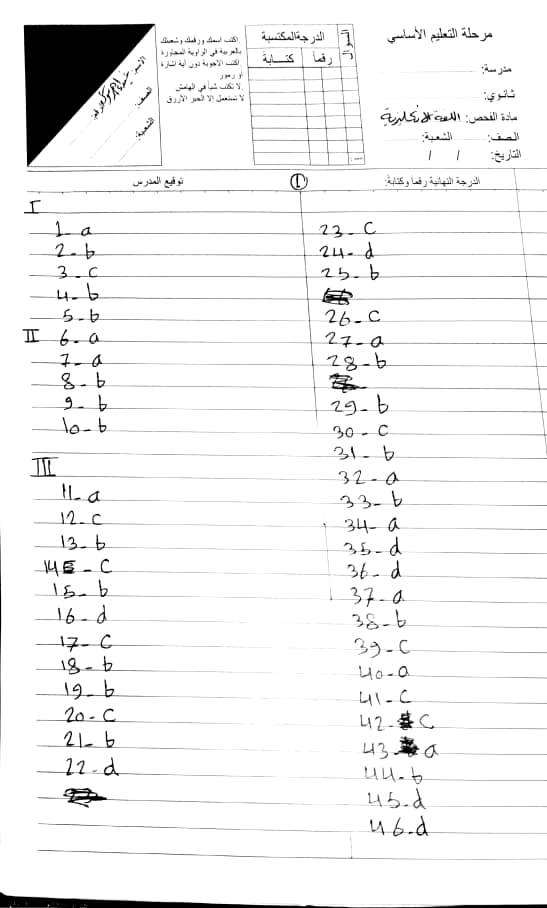 مرحلة التعليم الأساسي
مدرسة:
ثانوي:
مادة الفحص: اللغة الانكليزية
الصف: الشعبة:
التاريخ: / /
السؤال
الدرجة المكتسبة
رقماً كتابة
اكتب اسمك ورقمك وشعبتك
بالعربية في الزاوية المجاورة
اكتب الاجوبة دون أية اشارة
او رموز
لا تكتب شيأ في الهامش
لا تستعمل الا الحبر الأزرق
الاسم:
الصف:
الشعبة:
الدرجة النهائية رقما وكتابة:
1
توقيع المدرس
I
1- a
2- b
3- c
4- b
5- b
II 6- a
7- a
8- b
9- b
10- b
III
11- a
12- c
13- b
14 - c
15- b
16- d
17- c
18- b
19- b
20- c
21- b
22- d
23- c
24- d
25- b
26- c
27- a
28- b
29- b
30- c
31- b
32- a
33- b
34- a
35- d
36- d
37- a
38- b
39- c
40- a
41- c
42- c
43- a
44- b
45- d
46- d